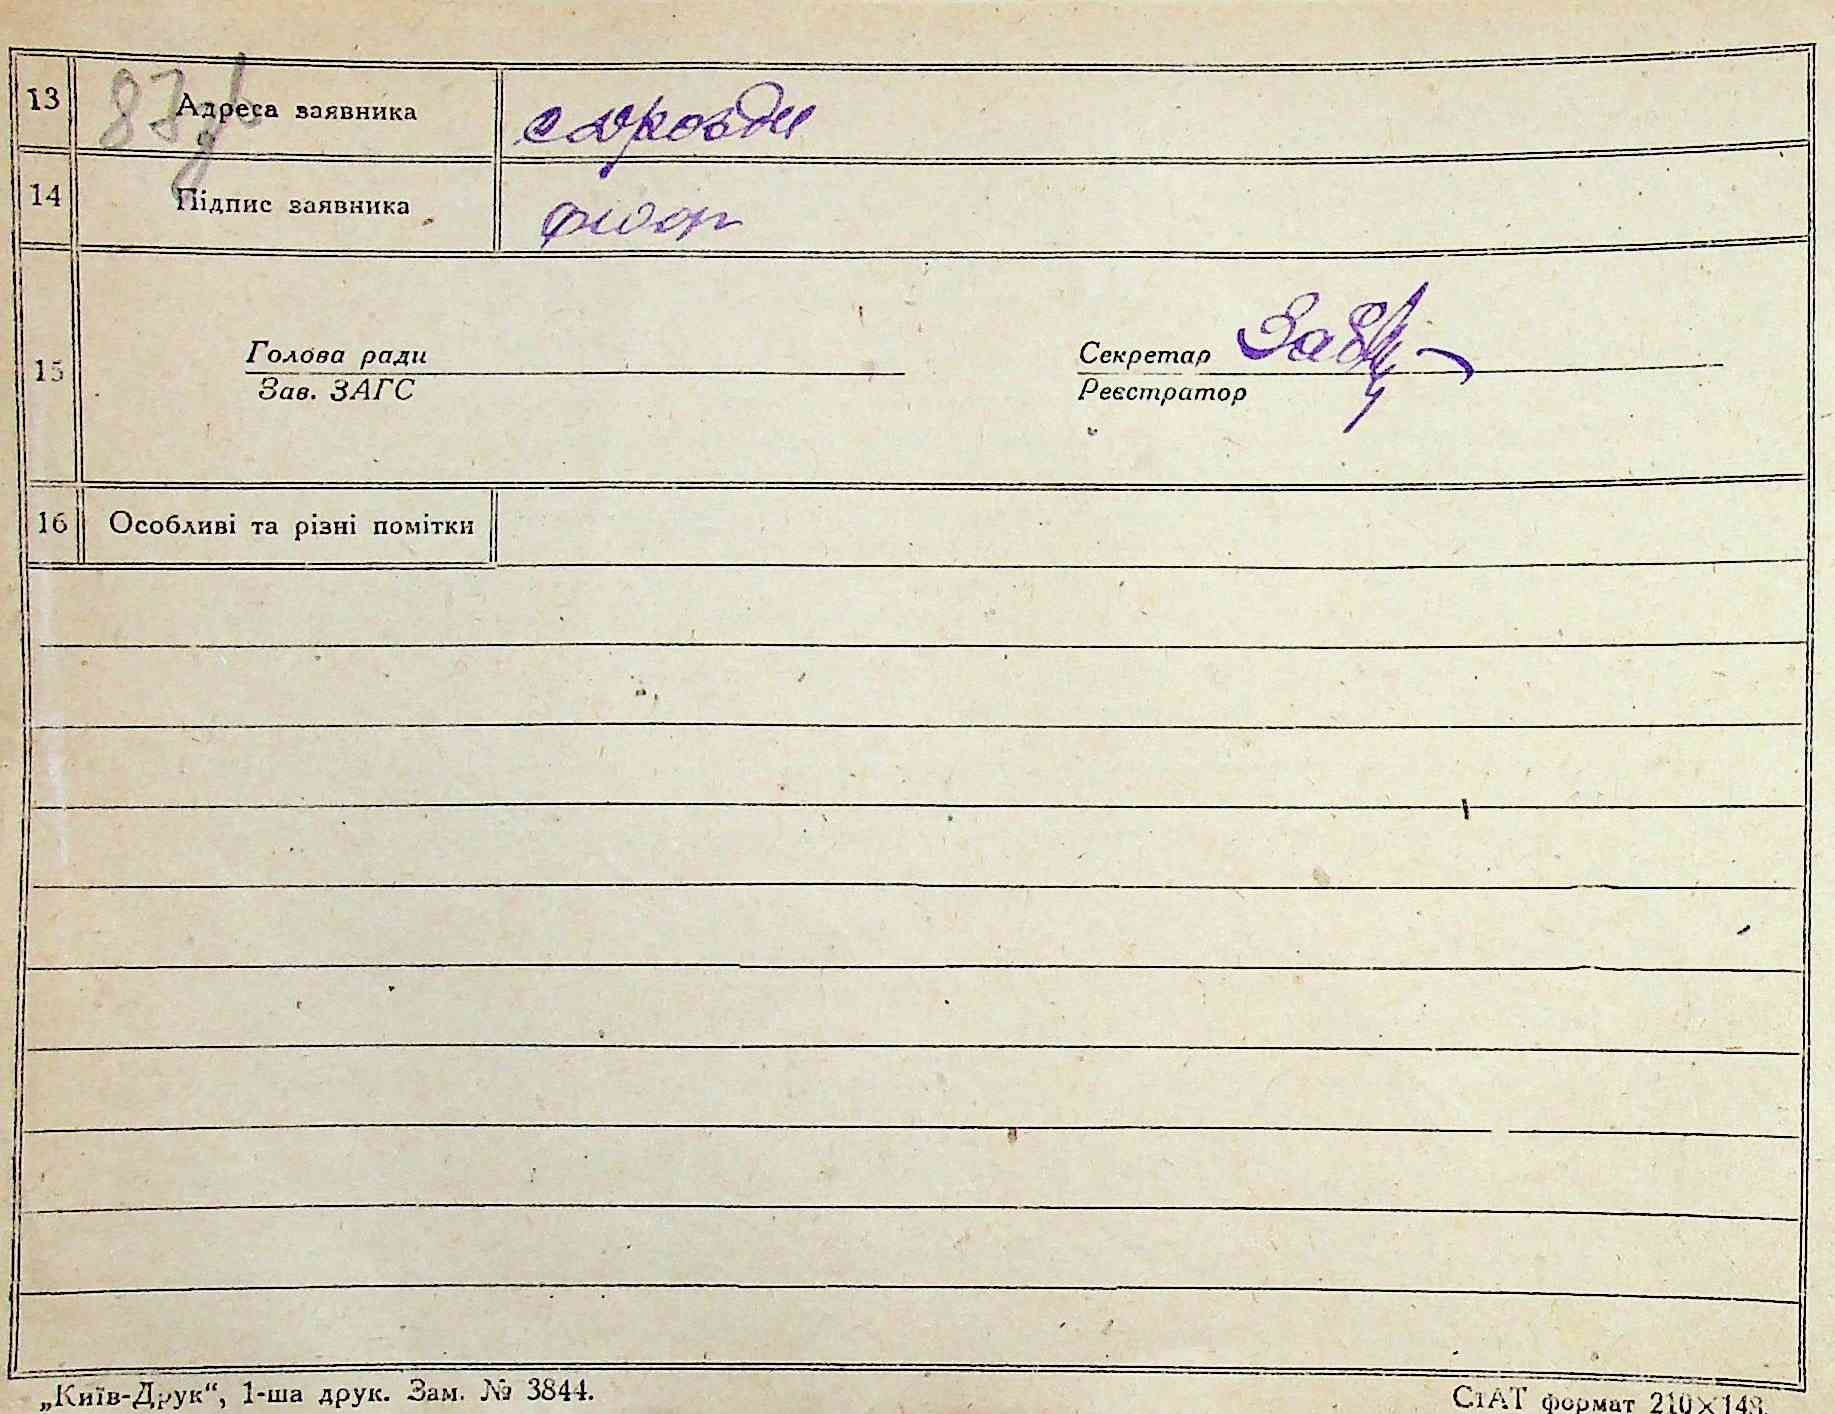 13 Адреса заявника с Дрозди
14 Підпис заявника
15 Голова ради Секретар
Зав. ЗАГС Реєстратор
16 Особливі та різні помітки
„Київ-Друк“, 1-ша друк. Зам. № 3844. СтАТ формат 210×148.